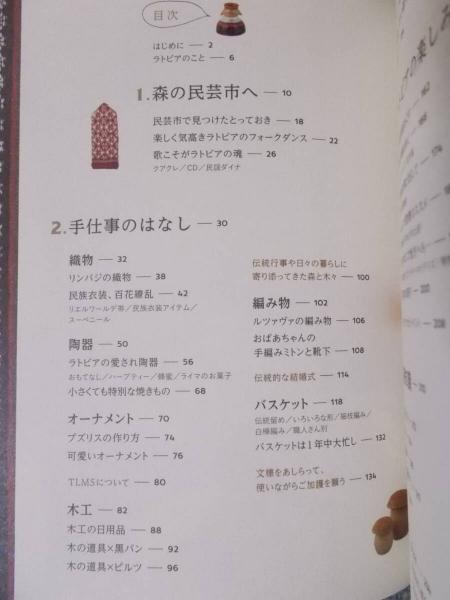 目次
はじめに — 2
ラトビアのこと — 6
1.森の民芸市へ — 10
民芸市で見つけたとっておき — 18
楽しく気高きラトビアのフォークダンス — 22
歌こそがラトビアの魂 — 26
クアクレ／CD／民謡ダイナ
2.手仕事のはなし — 30
織物 — 32
リンバジの織物 — 38
民族衣装、百花繚乱 — 42
リエルワールデ帯／民族衣装アイテム／
スーベニール
陶器 — 50
ラトビアの愛され陶器 — 56
おもてなし／ハーブティー／蜂蜜／ライマのお菓子
小さくても特別な焼きもの — 68
オーナメント — 70
プズリスの作り方 — 74
可愛いオーナメント — 76
TLMSについて — 80
木工 — 82
木工の日用品 — 88
木の道具×黒パン — 92
木の道具×ピルツ — 96
伝統行事や日々の暮らしに
寄り添ってきた森と木々 — 100
編み物 — 102
ルツァヴァの編み物 — 106
おばあちゃんの
手編みミトンと靴下 — 108
伝統的な結婚式 — 114
バスケット — 118
伝統留め／いろいろな形／細枝編み／
白樺編み／職人さん別
バスケットは1年中大忙し — 132
文様をあしらって、
使いながらご加護を願う — 134